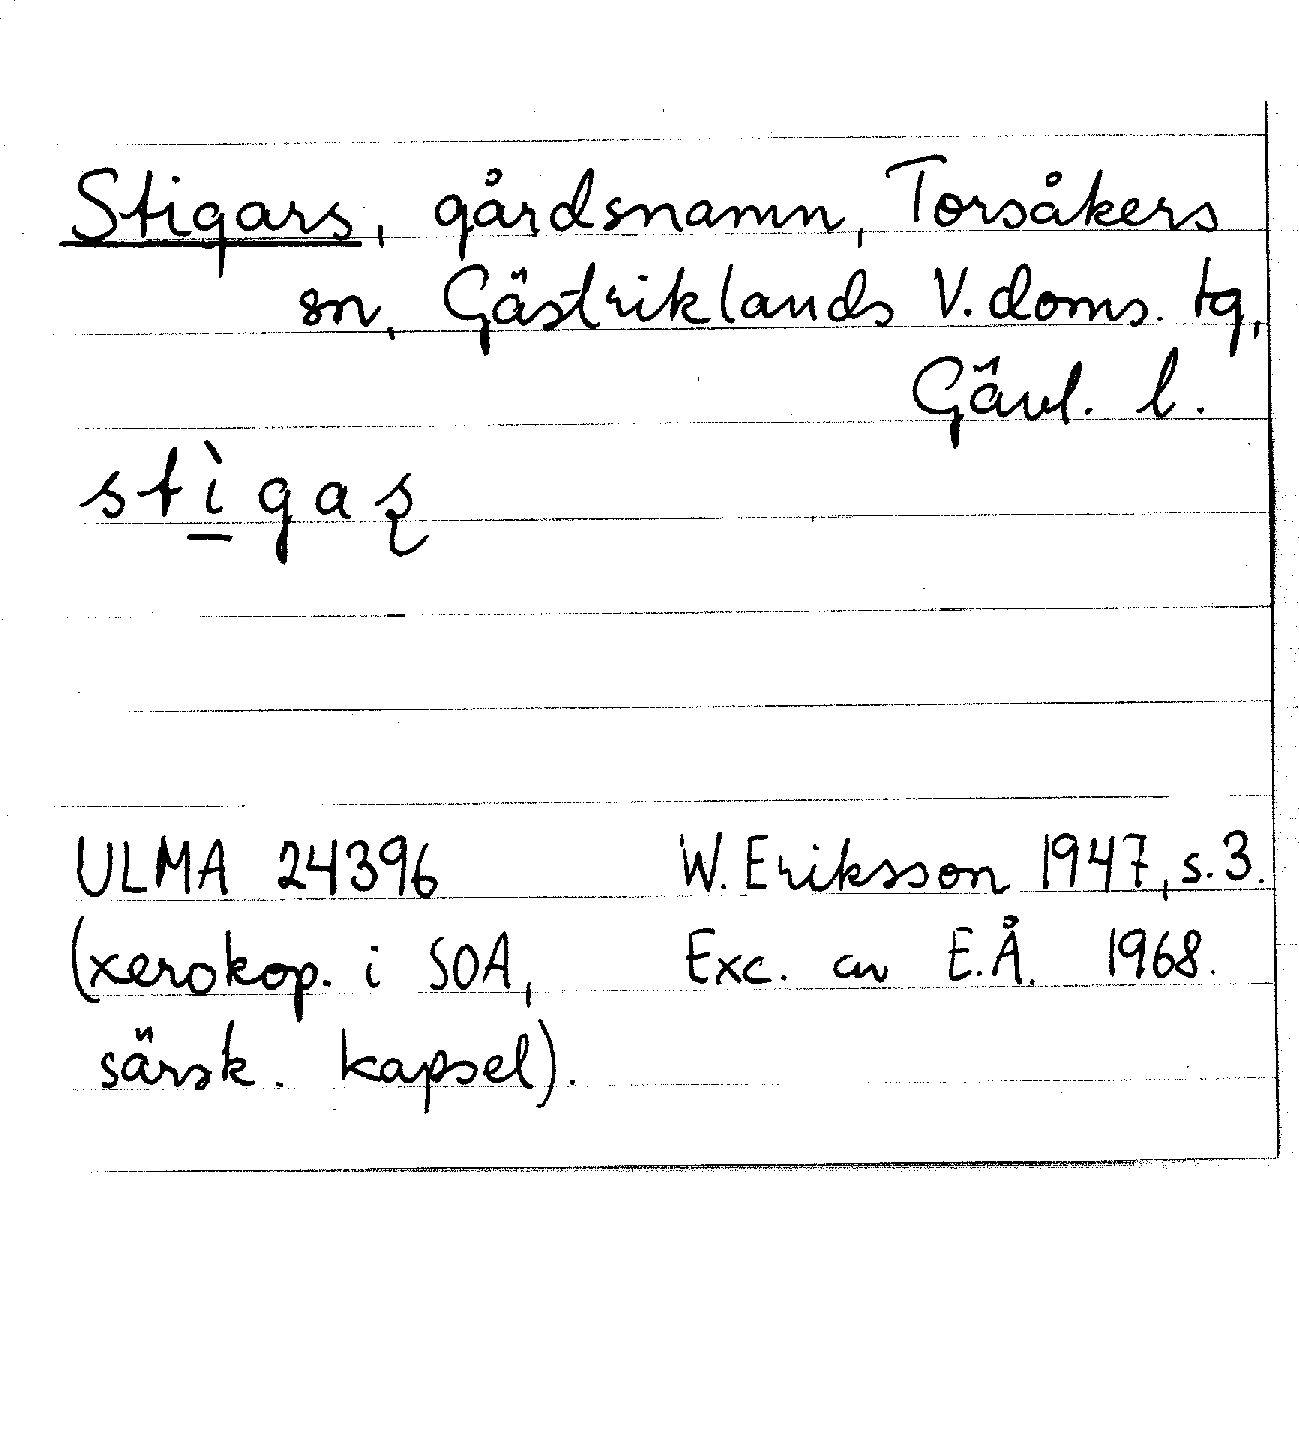 Stigars, gårdsnamn, Torsåkers
sn, Gästriklands V. doms. tg,
Gävl. l.
stìgaʂ
ULMA 24396 W. Eriksson 1947, s. 3.
(xerokop. i SOA, Exc. av E.Å. 1968.
särsk. kapsel).